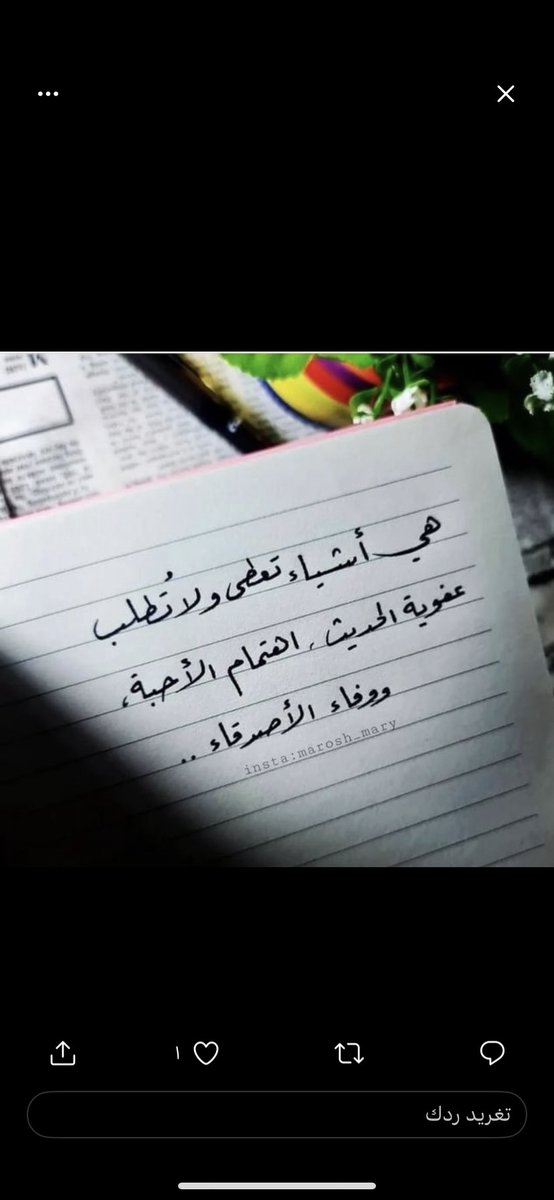 هي أشياء تعطى ولا تُطلب
عفوية الحديث، اهتمام الأحبة،
ووفاء الأصدقاء ..
insta:marosh_mary
١
تغريد ردك